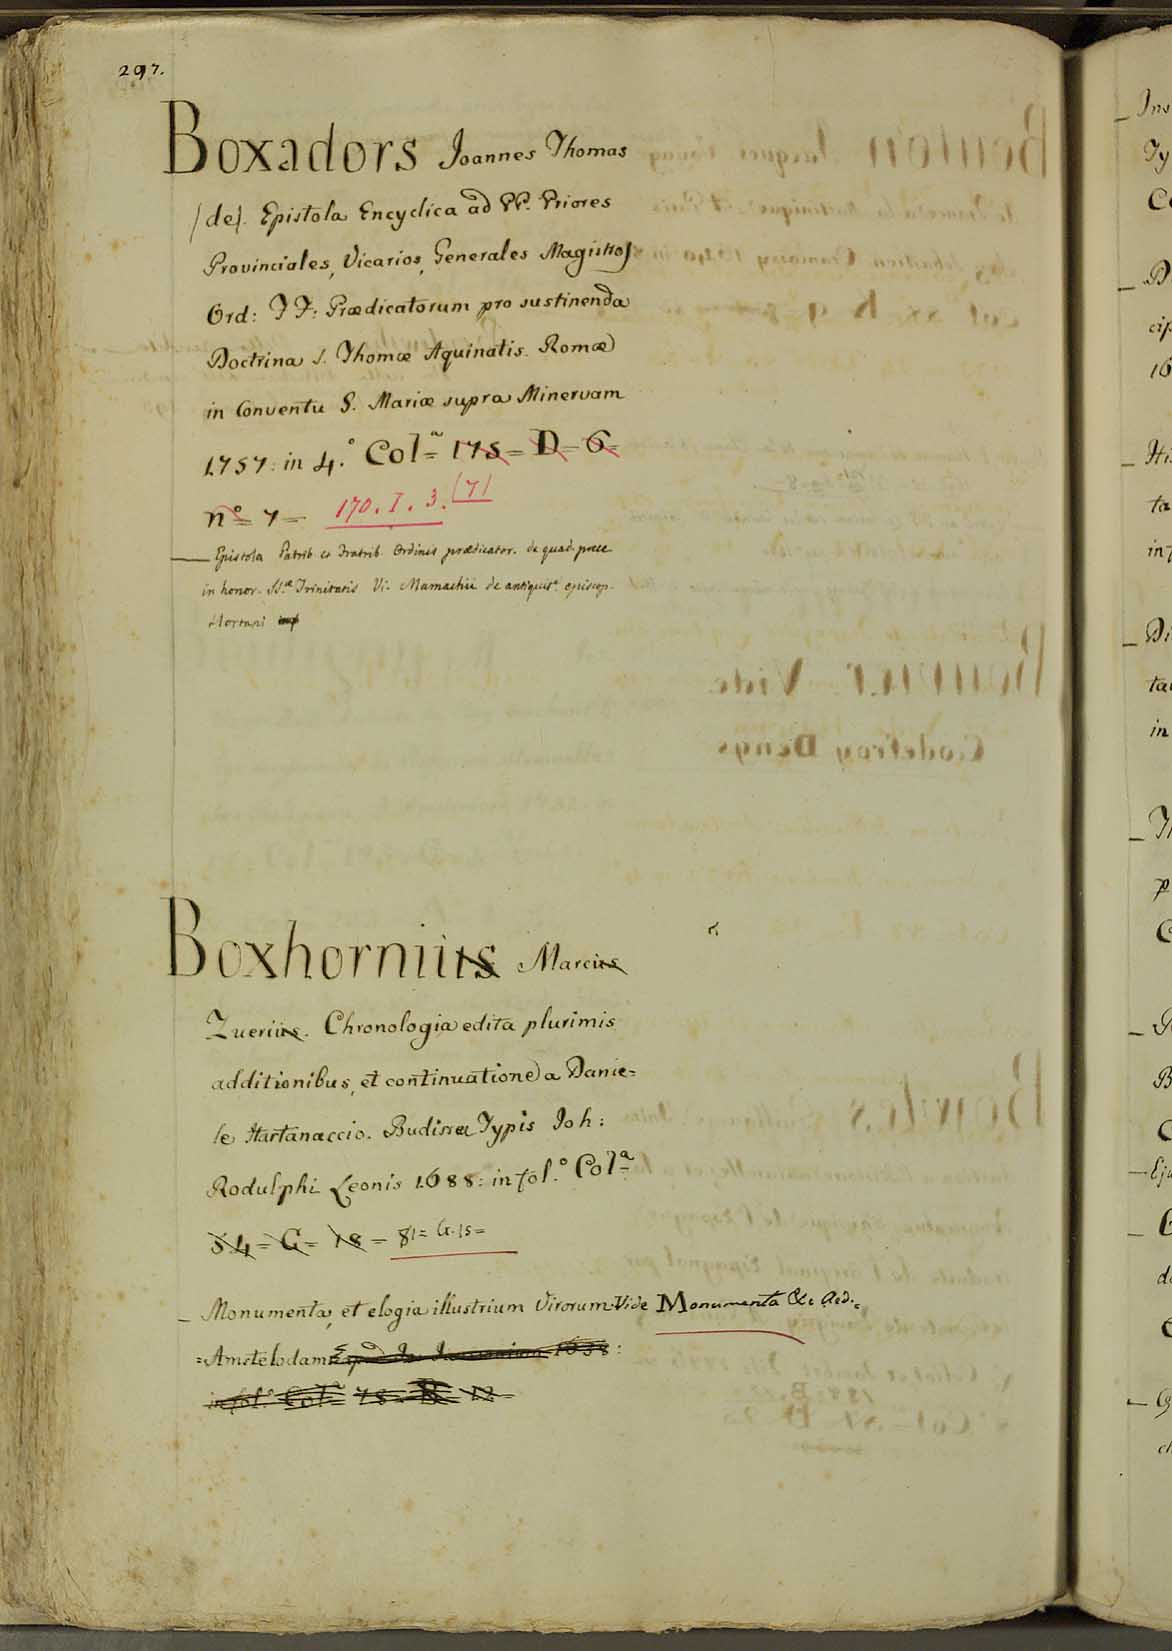 297.
Boxadors Joannes Thomas
(de). Epistola Encyclica ad PP. Priores
Provinciales, Vicarios, Generales Magistros
Ord: FF: Prædicatorum pro sustinenda
Doctrina S. Thomæ Aquinatis. Romæ
in Conventu S. Mariæ supra Minervam
1757: in 4.º Colª 175= D= 6=
nº= 7= 170. I. 3. (7)
— Epistola Patrib et Fratrib Ordinis prædicator. de quad. prece
in honor. SSæ Trinitatis Vi. Mamachii de antiquitª episcop.
Hortani
Boxhorniius Marcius
Zueriius. Chronologia edita plurimis
additionibus, et continuatione a Danie=
le Hartanaccio. Budissæ Typis Joh:
Rodulphi Leonis 1688: in fol.º Colª
54= G= 18= 81= G. 15=
– Monumenta, et elogia illustrium Virorum Vide Monumenta &c Aed:
=Amstelodami 1638:
in fol.º Colª 78 B 12
Ins
Ty
Co
– D
cip
16
– His
ta
in f
– Di
ta
in
C
B
C
– Eju
de